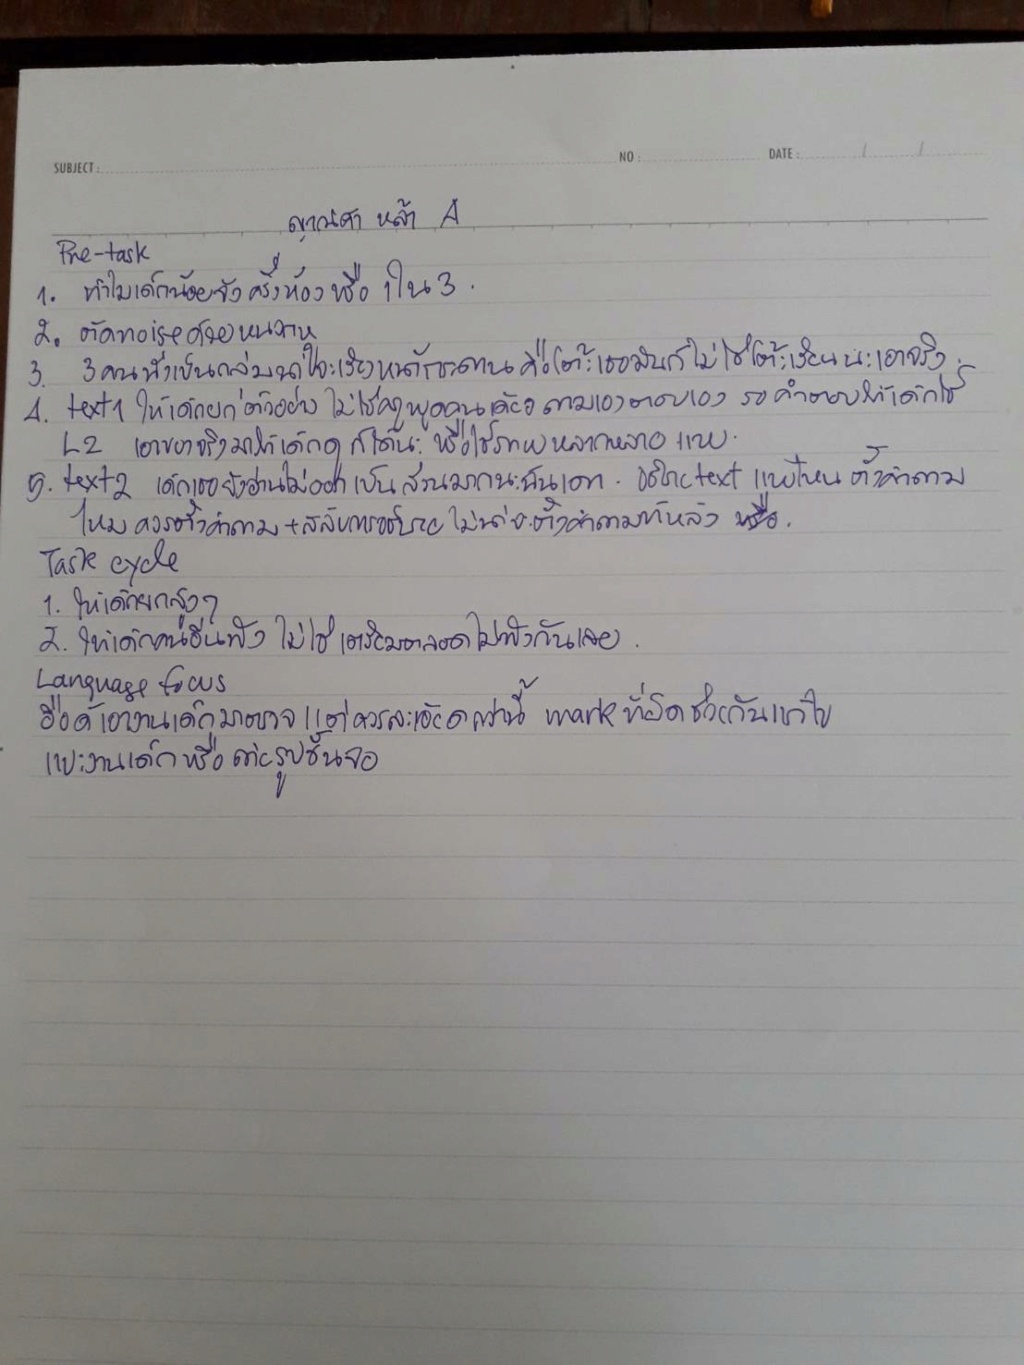 SUBJECT :
NO :
DATE : / /
หล้า A
Pre-task
1. ทำไมเด็กน้อยจัง ครึ่งห้อง หรือ 1 ใน 3.
2. ตัด noise ด้วย
3. 3 คนนั่งเป็นกลุ่ม คือโต๊ะเธอมันก็ไม่ใช่โต๊ะเรียนนะเอาจริง.
4. text 1 ให้เด็กยกตัวอย่าง ไม่ใช่ครูพูดคนเดียว ถามเองตอบเอง รอคำตอบให้เด็กใช้
L2 เอาของจริงมาให้เด็กดูก็ได้นะ หรือใช้ภาพหลากหลายแบบ.
5. text 2 เด็กเธอยังอ่านไม่ออกเป็นส่วนมากนะฉันเดา. อธิบาย text แบบไหน ตั้งคำถาม
ไหม ควรตั้งคำถาม + สลับการอธิบาย ไม่น่าจะตั้งคำถามทีหลัง หรือ.
Task cycle
1. ให้เด็กยกสูงๆ
2. ให้เด็กคนอื่นฟัง ไม่ใช่เตรียมตลอดไม่ฟังกันเลย.
Language focus
คือดีเอางานเด็กมาตรวจ แต่ควรละเอียดกว่านี้ mark ที่ผิดช่วยกันแก้ไข
แปะงานเด็กหรือถ่ายรูปขึ้นจอ